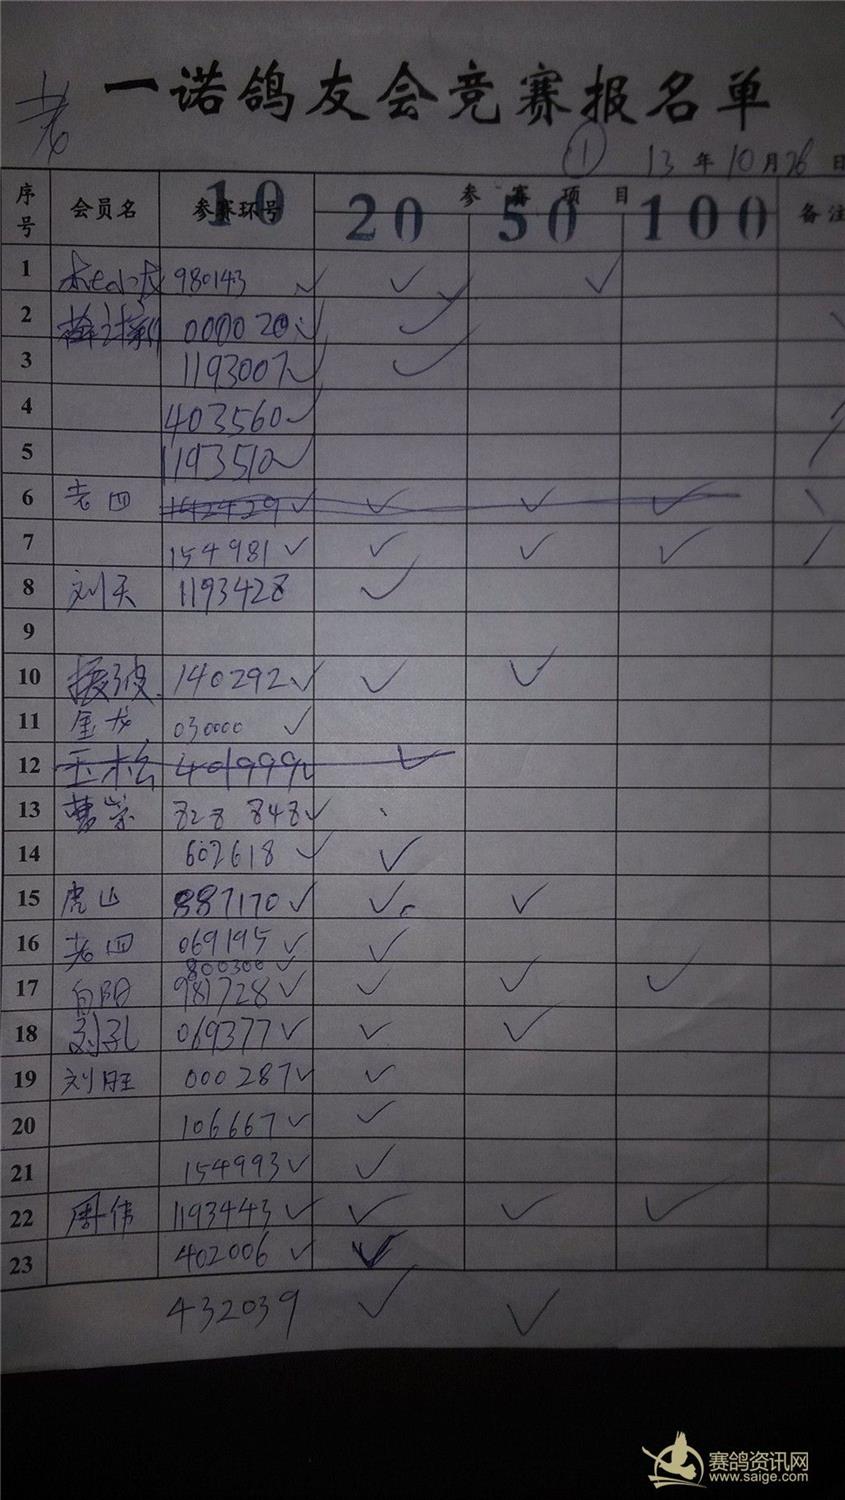 老
一诺鸽友会竞赛报名单
① 13年10月26日
序号 会员名 参赛环号 参赛项目 备注
10 20 50 100
1 980143 ✓ ✓ ✓
2 000020 ✓ ✓
3 1193007 ✓ ✓
4 403560 ✓
5 1193510 ✓
6 老四 142429 ✓ ✓ ✓ ✓
7 154981 ✓ ✓ ✓ ✓
8 刘天 1193428 ✓
9
10 振波 140292 ✓ ✓ ✓
11 金龙 030000 ✓
12 玉松 401999 ✓ ✓
13 曹荣 828 848 ✓
14 602618 ✓ ✓
15 虎山 887170 ✓ ✓ ✓
16 老四 069195 ✓ ✓
800300 ✓
17 向阳 981728 ✓ ✓ ✓ ✓
18 刘孔 069377 ✓ ✓ ✓
19 刘旺 000287 ✓ ✓
20 106667 ✓ ✓
21 154993 ✓ ✓
22 周伟 1193443 ✓ ✓ ✓ ✓
23 402006 ✓ ✓
432039 ✓ ✓
赛鸽资讯网
www.saige.com